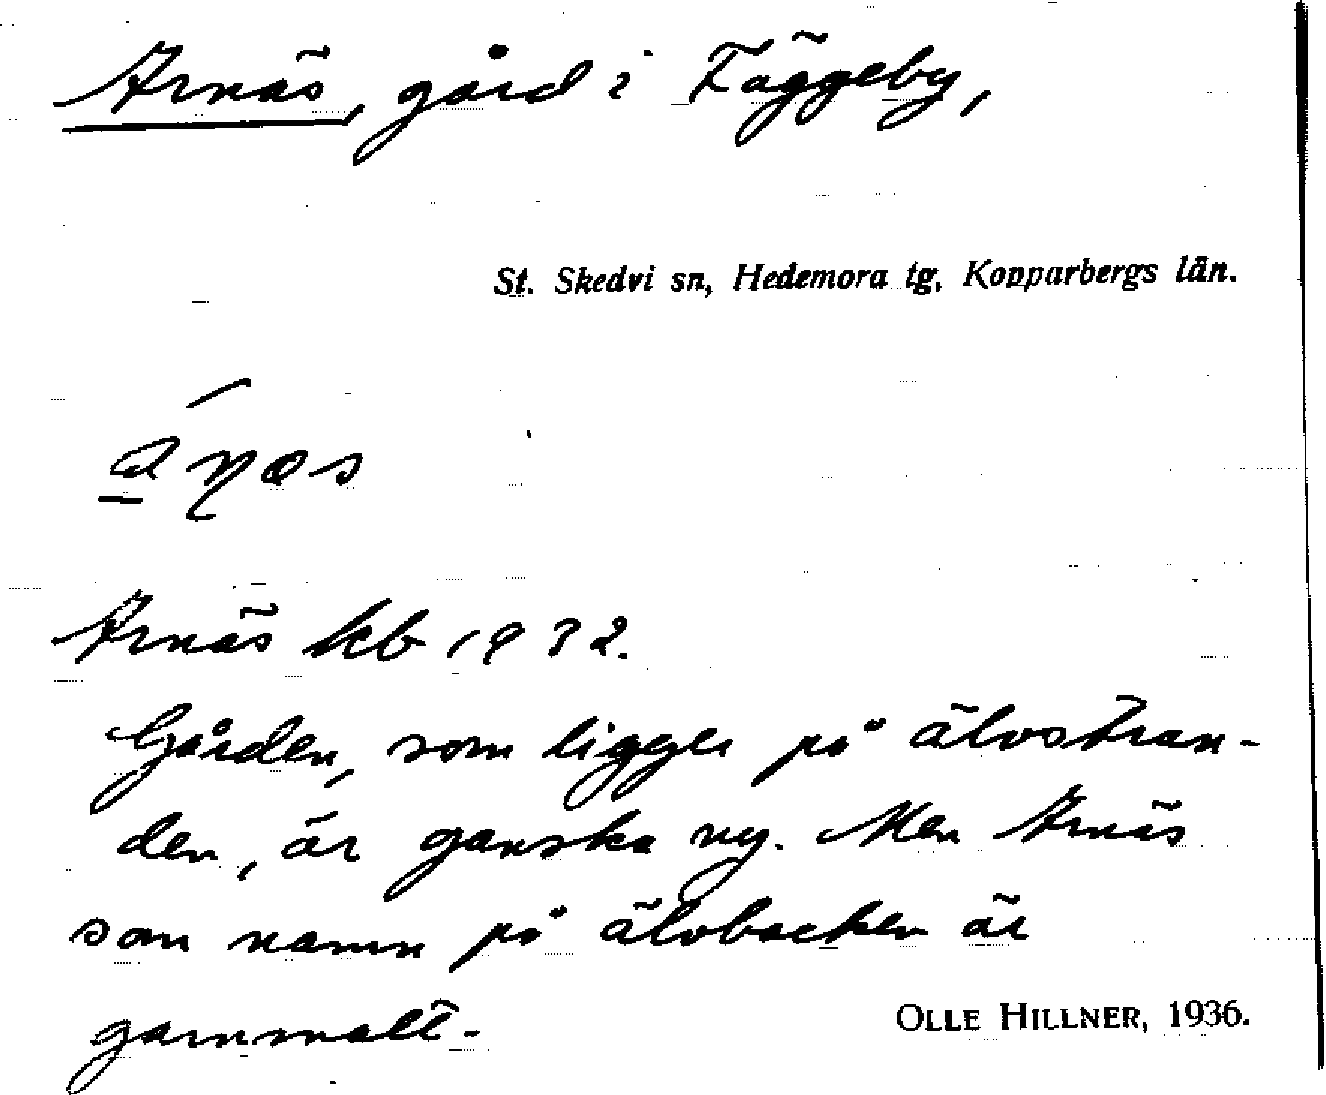 Arnäs, gård i Fäggeby,
St. Skedvi sn, Hedemora tg, Kopparbergs län.
Arnäs kb 1932.
Gården, som ligger på älvstran-
den, är ganska ny. Men Arnäs
som namn på älvbacken är
gammalt.
OLLE HILLNER, 1936.